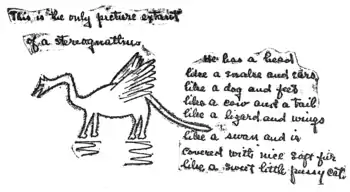 This is the only picture extant
of a stereognathus
He has a head
like a snake and ears
like a dog and feet
like a cow and a tail
like a lizard and wings
like a swan and is
covered with nice soft fur
like a sweet little pussy cat.